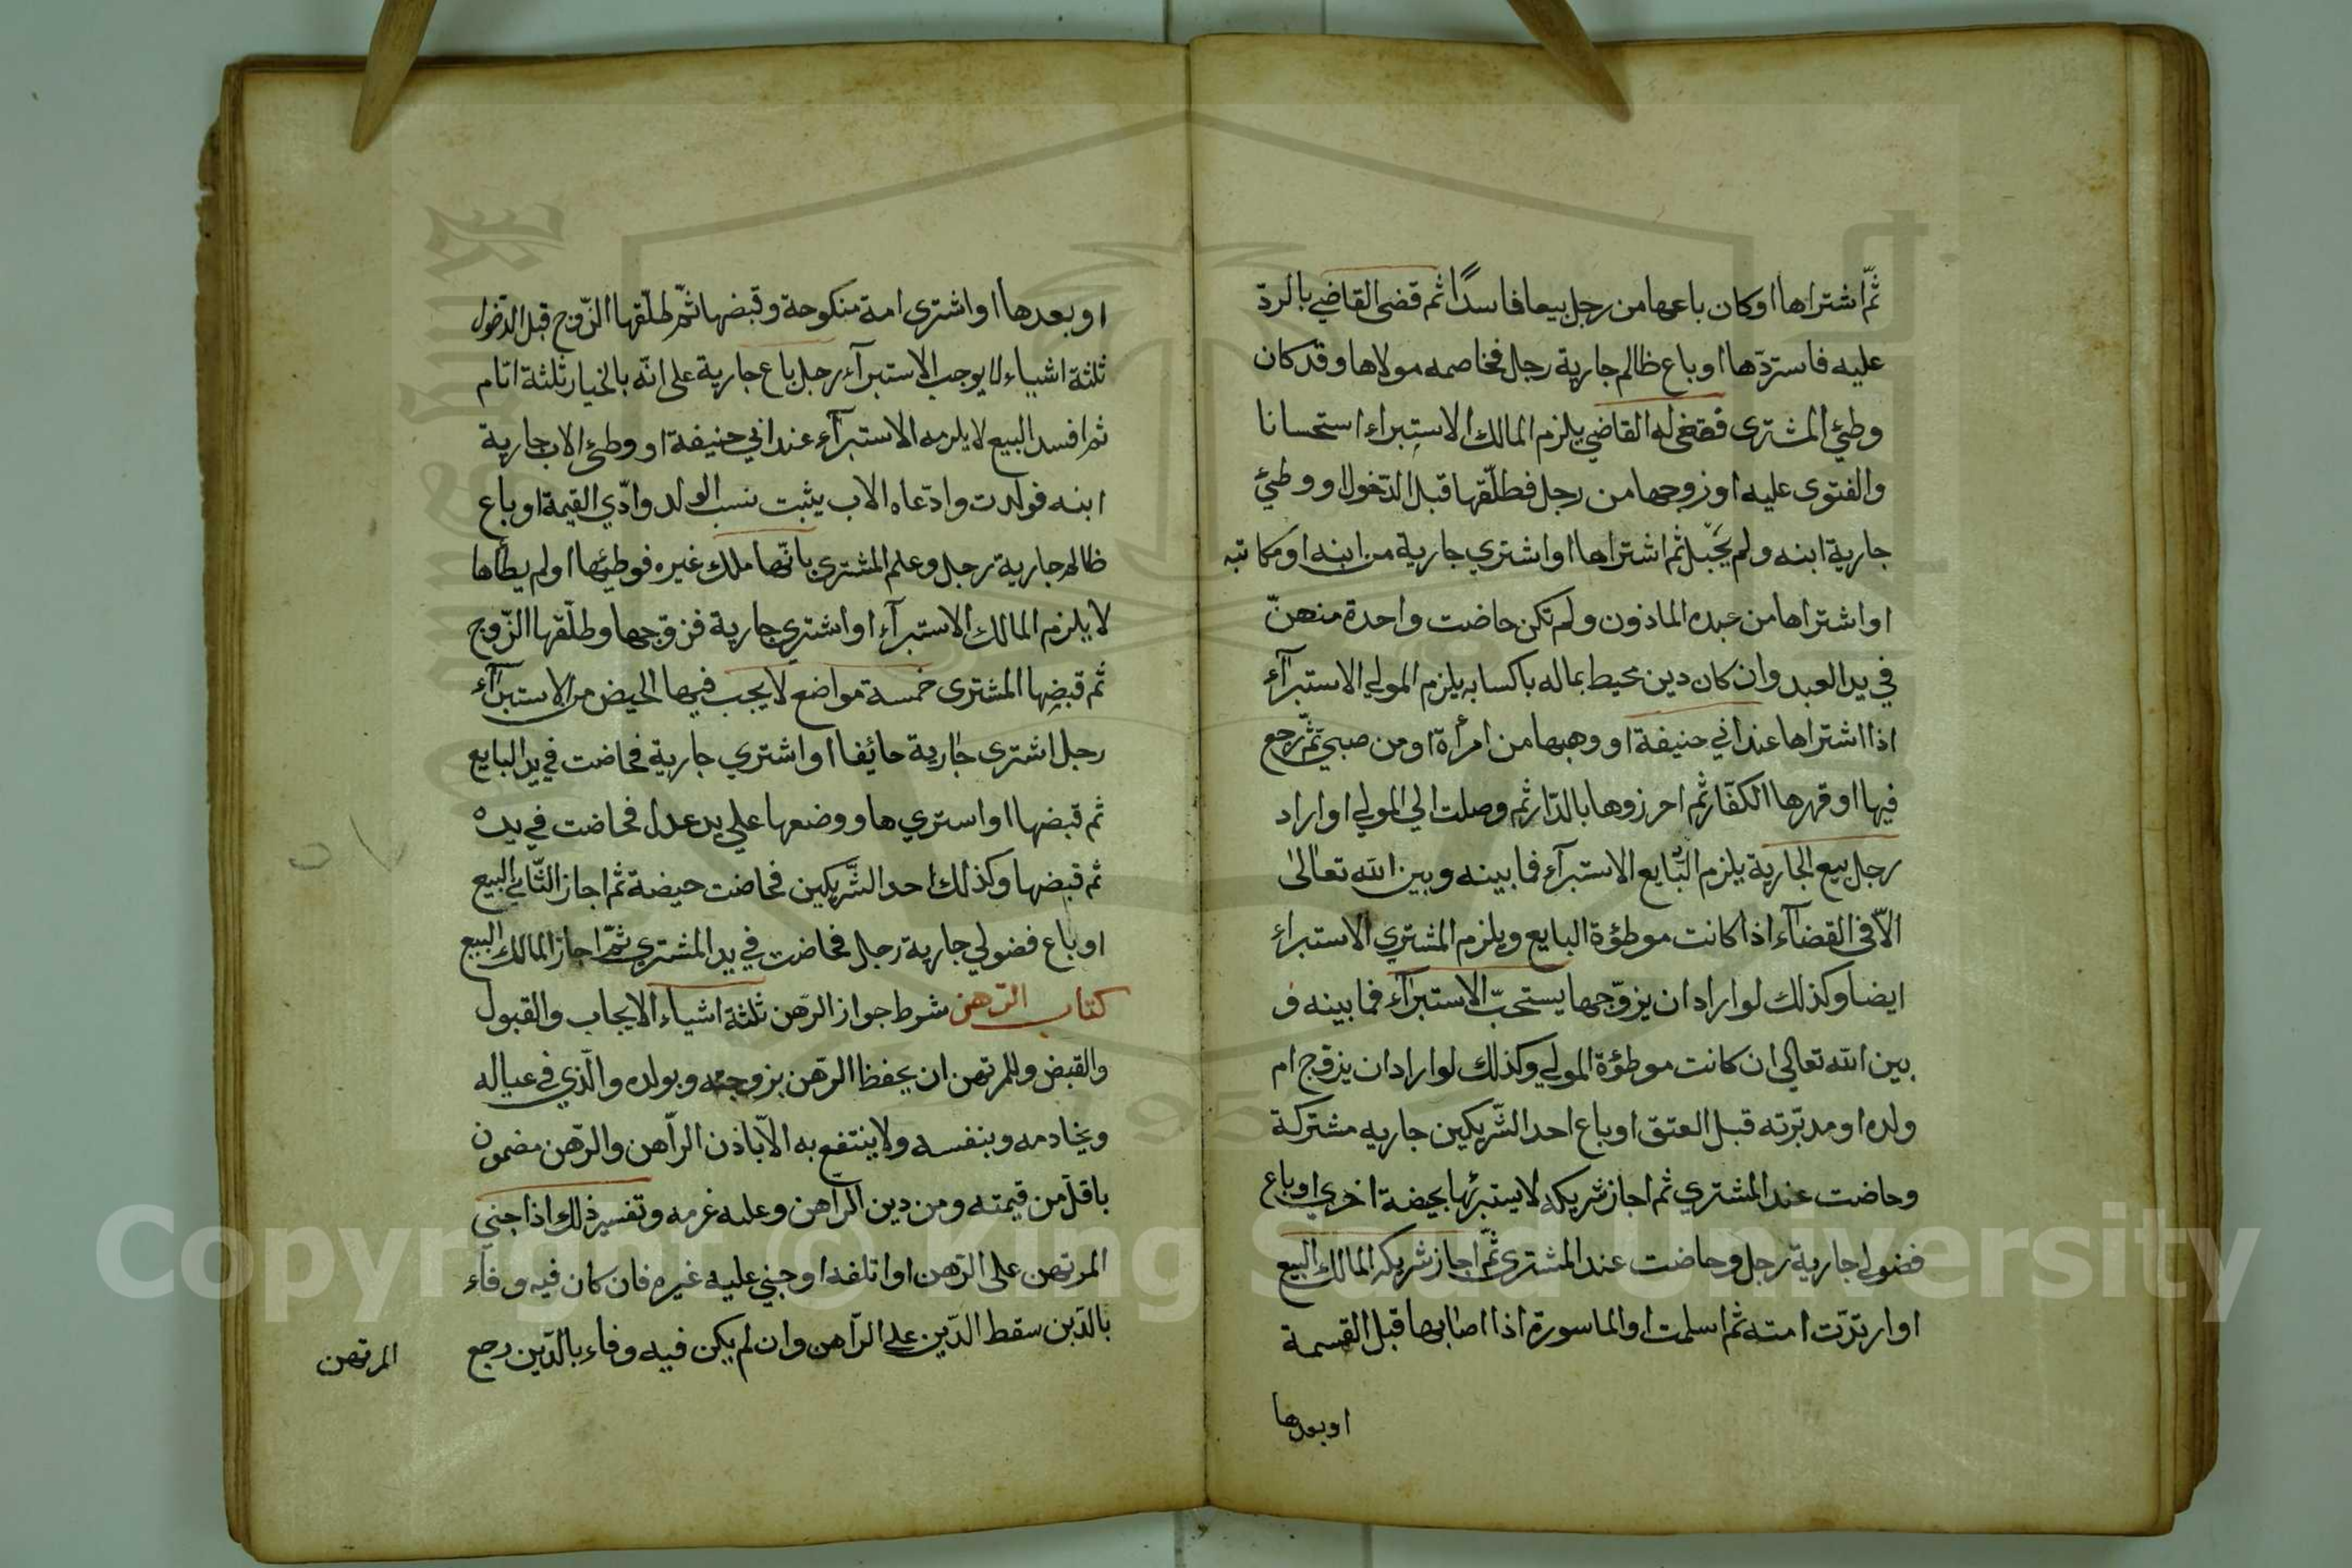 ثمّ اشتراها او كان باعها من رجل بيعا فاسدًا ثم قضى القاضي بالردّ
عليه فاستردّها او باع ظالم جارية رجل فخاصمه مولاها وقد كان
وطئ المشترى فقضى له القاضي يلزم المالك الاستبراء استحسانا
والفتوى عليه او زوجها من رجل فطلّقها قبل الدّخول او وطئ
جارية ابنه ولم يحبل ثم اشتراها او اشتري جارية من ابنه او مكاتبه
او اشتراها من عبده الماذون ولم تكن حاضت واحدة منهنّ
في يد العبد وان كان دين محيط بماله باكسابه يلزم المولي الاستبرآء
اذا اشتراها عند ابي حنيفة او وهبها من امرأة او من صبي ثمّ رجع
فيها او قهرها الكفّار ثم احرزوها بالدّار ثم وصلت الي المولي او اراد
رجل بيع الجارية يلزم البّايع الاستبرآء فما بينه وبين الله تعالى
الّا في القضآء اذا كانت موطؤة البايع ويلزم المشتري الاستبراء
ايضا وكذلك لو اراد ان يزوّجها يستحبّ الاستبرآء فما بينه و
بين الله تعالى ان كانت موطؤة المولي وكذلك لو اراد ان يزوّج ام
ولده او مدبّرته قبل العتق او باع احد الشّريكين جاريه مشتركة
وحاضت عند المشتري ثم اجاز شريكه لا يستبرئها بحيضة اخري او باع
فضولي جارية رجل وحاضت عند المشترى ثمّ اجاز شريكه المالك البيع
او ارتدّت امته ثم اسلمت او الماسورة اذا اصابها قبل القسمة
او بعدها
او بعدها او اشترى امة منكوحة وقبضها ثمّ طلّقها الزّوج قبل الدّخول
ثلثة اشياء لا يوجب الاستبرآء رجل باع جارية على انّه بالخيار ثلثة ايّام
ثم افسد البيع لا يلزمه الاستبرآء عند ابي حنيفة او وطئ الاب جارية
ابنه فولدت وادّعاه الاب يثبت نسب الولد وادّي القيمة او باع
ظالم جارية رجل وعلم المشتري بانّها ملك غيره فوطئها او لم يطأها
لا يلزم المالك الاستبرآء او اشتري جارية فزوّجها وطلّقها الزّوج
ثم قبضها المشترى خمسة مواضع لا يجب فيها الحيض من الاستبرآء
رجل اشترى جارية حائضا او اشتري جارية فحاضت في يد البايع
ثم قبضها او استري ها ووضعها علي يد عدل فحاضت في يده
ثم قبضها وكذلك احد الشّريكين فحاضت حيضة ثم اجاز الثّاني البيع
او باع فضولي جارية رجل فحاضت في يد المشتري ثمّ اجاز المالك البيع
كتاب الرّهن شرط جواز الرّهن ثلثة اشياء الايجاب والقبول
والقبض وللمرتهن ان يحفظ الرّهن بزوجته وبولده والّذي في عياله
وبخادمه وبنفسه ولا ينتفع به الّا باذن الرّاهن والرّهن مضمون
باقلّ من قيمته ومن دين الرّاهن وعليه غرمه وتفسير ذلك اذا جني
المرتهن على الرّهن او اتلفه او جني عليه غيره فان كان فيه وفآء
بالدّين سقط الدّين علي الرّاهن وان لم يكن فيه وفاء بالدّين رجع
المرتهن
Copyright © King Saud University